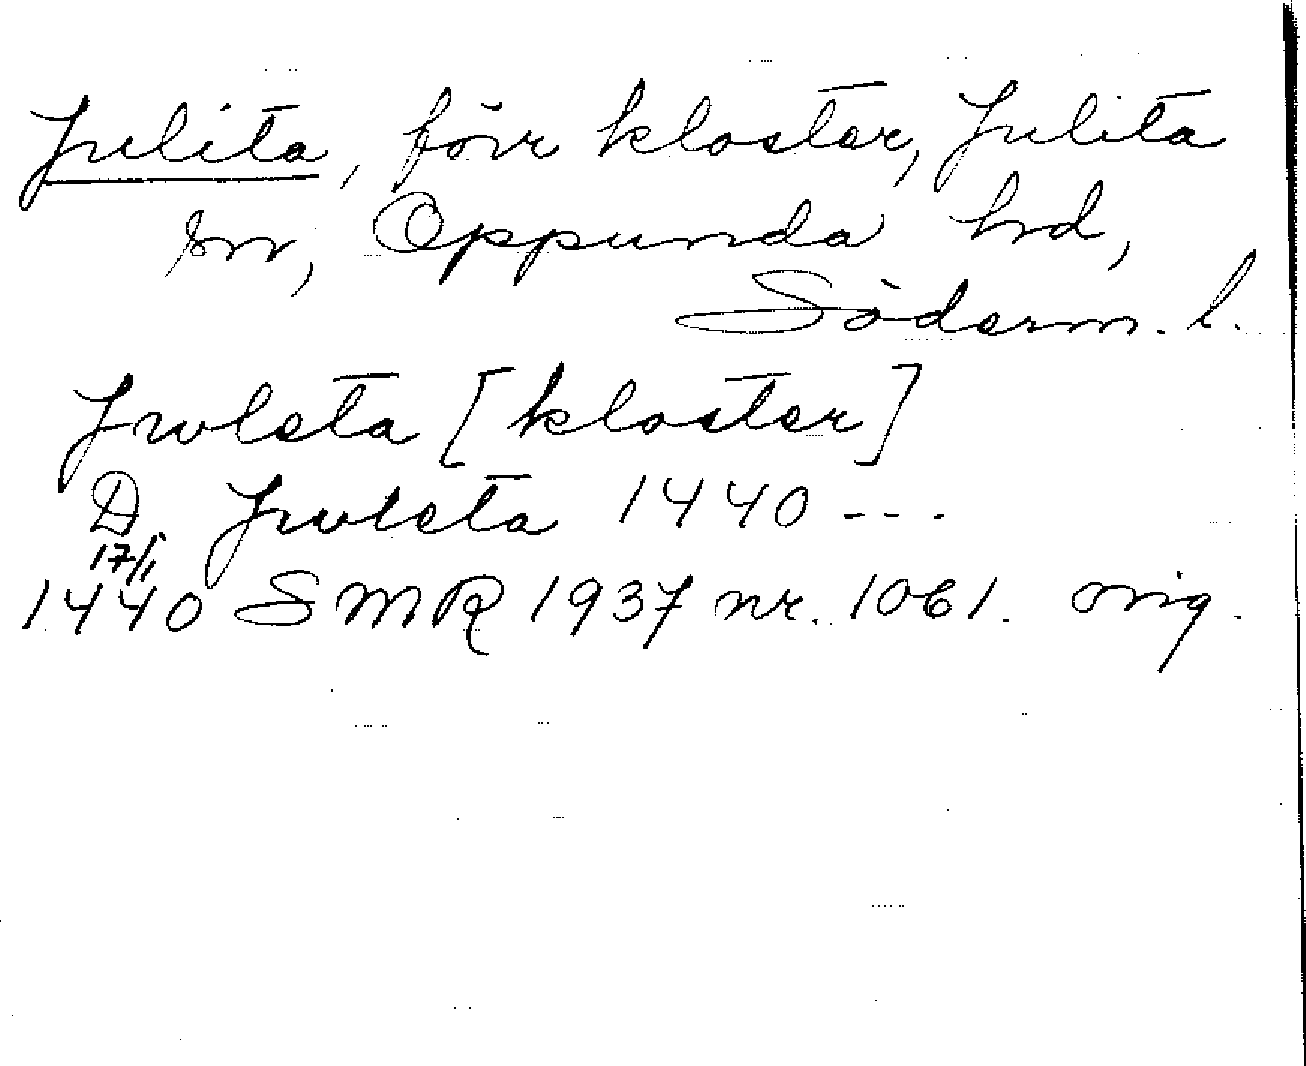 Julita, förr kloster, Julita
sn, Oppunda hrd,
Söderm. l.
Jwleta [kloster]
D. Jwleta 1440 ---
17/1
1440 SMR 1937 nr. 1061. orig.